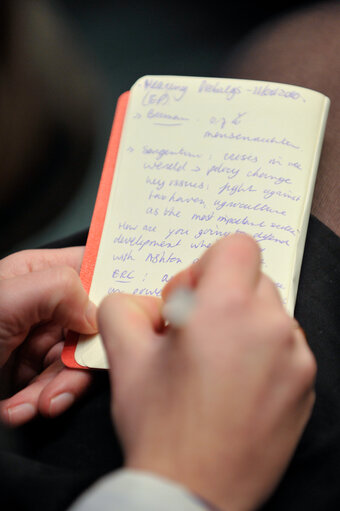 Hearing Piebalgs - 11/01/2010.
(EP)
> Berman : o.g. v
mensenrechten
> Sargentini : crises in the
wereld > policy change
key issues : fight against
tax haven, agriculture
as the most important sector
How are you going to defense
development when
with Ashton
ERC : a